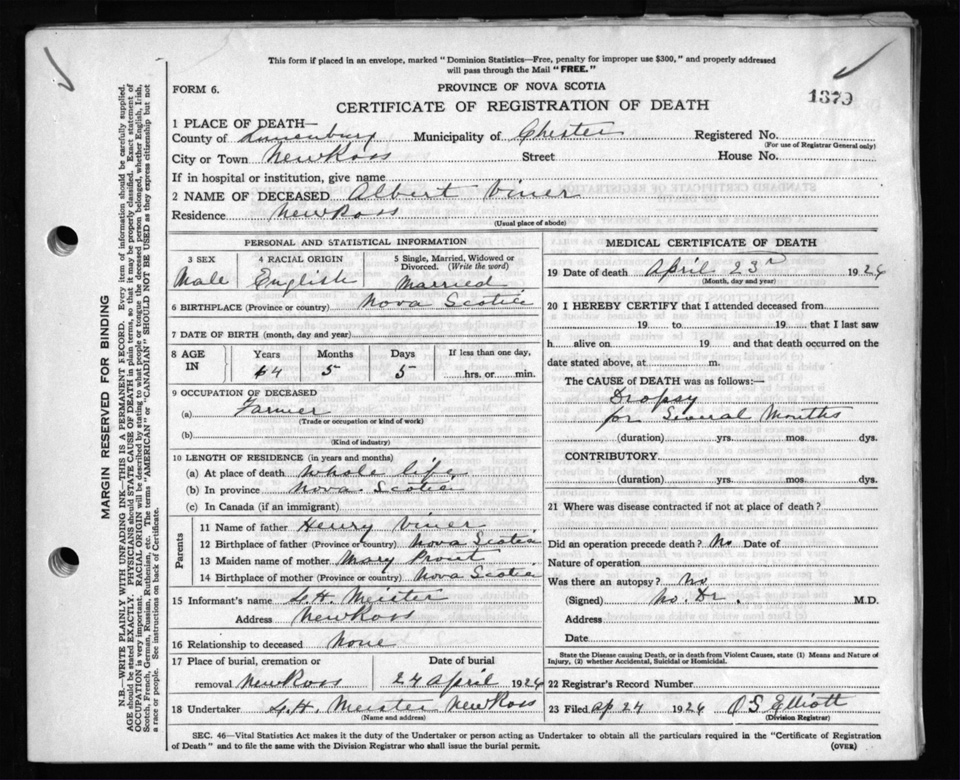 This form if placed in an envelope, marked "Dominion Statistics—Free, penalty for improper use $300," and properly addressed
will pass through the Mail "FREE."
FORM 6.
PROVINCE OF NOVA SCOTIA
1379
CERTIFICATE OF REGISTRATION OF DEATH
1 PLACE OF DEATH—
County of Lunenburg Municipality of Chester Registered No.
(For use of Registrar General only)
City or Town New Ross Street House No.
If in hospital or institution, give name
2 NAME OF DECEASED Albert Viner
Residence New Ross
(Usual place of abode)
PERSONAL AND STATISTICAL INFORMATION
3 SEX 4 RACIAL ORIGIN 5 Single, Married, Widowed or Divorced. (Write the word)
Male English Married
6 BIRTHPLACE (Province or country) Nova Scotia
7 DATE OF BIRTH (month, day and year)
8 AGE IN Years Months Days If less than one day,
64 5 5 hrs. or min.
9 OCCUPATION OF DECEASED
(a) Farmer
(Trade or occupation or kind of work)
(b)
(Kind of industry)
10 LENGTH OF RESIDENCE (in years and months)
(a) At place of death whole life
(b) In province Nova. Scotia
(c) In Canada (if an immigrant)
Parents
11 Name of father Henry Viner
12 Birthplace of father (Province or country) Nova Scotia
13 Maiden name of mother Mary Prout
14 Birthplace of mother (Province or country) Nova Scotia
15 Informant's name Meister
Address New Ross
16 Relationship to deceased None
17 Place of burial, cremation or Date of burial
removal New Ross 24 April 1926
18 Undertaker Meister New Ross
(Name and address)
MEDICAL CERTIFICATE OF DEATH
19 Date of death April 23rd 1926
(Month, day and year)
20 I HEREBY CERTIFY that I attended deceased from
19 to 19 that I last saw
h alive on 19 and that death occurred on the
date stated above, at m.
The CAUSE of DEATH was as follows:—
Dropsy
for Several Months
(duration) yrs. mos. dys.
CONTRIBUTORY
(duration) yrs. mos. dys.
21 Where was disease contracted if not at place of death?
Did an operation precede death? No Date of
Nature of operation
Was there an autopsy? No
(Signed) No. Dr. M.D.
Address
Date
State the Disease causing Death, or in death from Violent Causes, state (1) Means and Nature of
Injury, (2) whether Accidental, Suicidal or Homicidal.
22 Registrar's Record Number
23 Filed Ap 24 1926 O S Elliott
(Division Registrar)
SEC. 46—Vital Statistics Act makes it the duty of the Undertaker or person acting as Undertaker to obtain all the particulars required in the "Certificate of Registration
of Death" and to file the same with the Division Registrar who shall issue the burial permit.
(OVER)
MARGIN RESERVED FOR BINDING
N.B.—WRITE PLAINLY WITH UNFADING INK—THIS IS A PERMANENT RECORD. Every item of information should be carefully supplied.
AGE should be stated EXACTLY. PHYSICIANS should STATE CAUSE OF DEATH in plain terms, so that it may be properly classified. Exact statement of
OCCUPATION is very important. RACIAL ORIGIN will be described by stating to what people or tongue the deceased person belonged, whether English, Irish,
Scotch, French, German, Russian, Ruthenian, etc. The terms "AMERICAN" or "CANADIAN" SHOULD NOT BE USED as they express citizenship but not
a race or people. See instructions on back of Certificate.